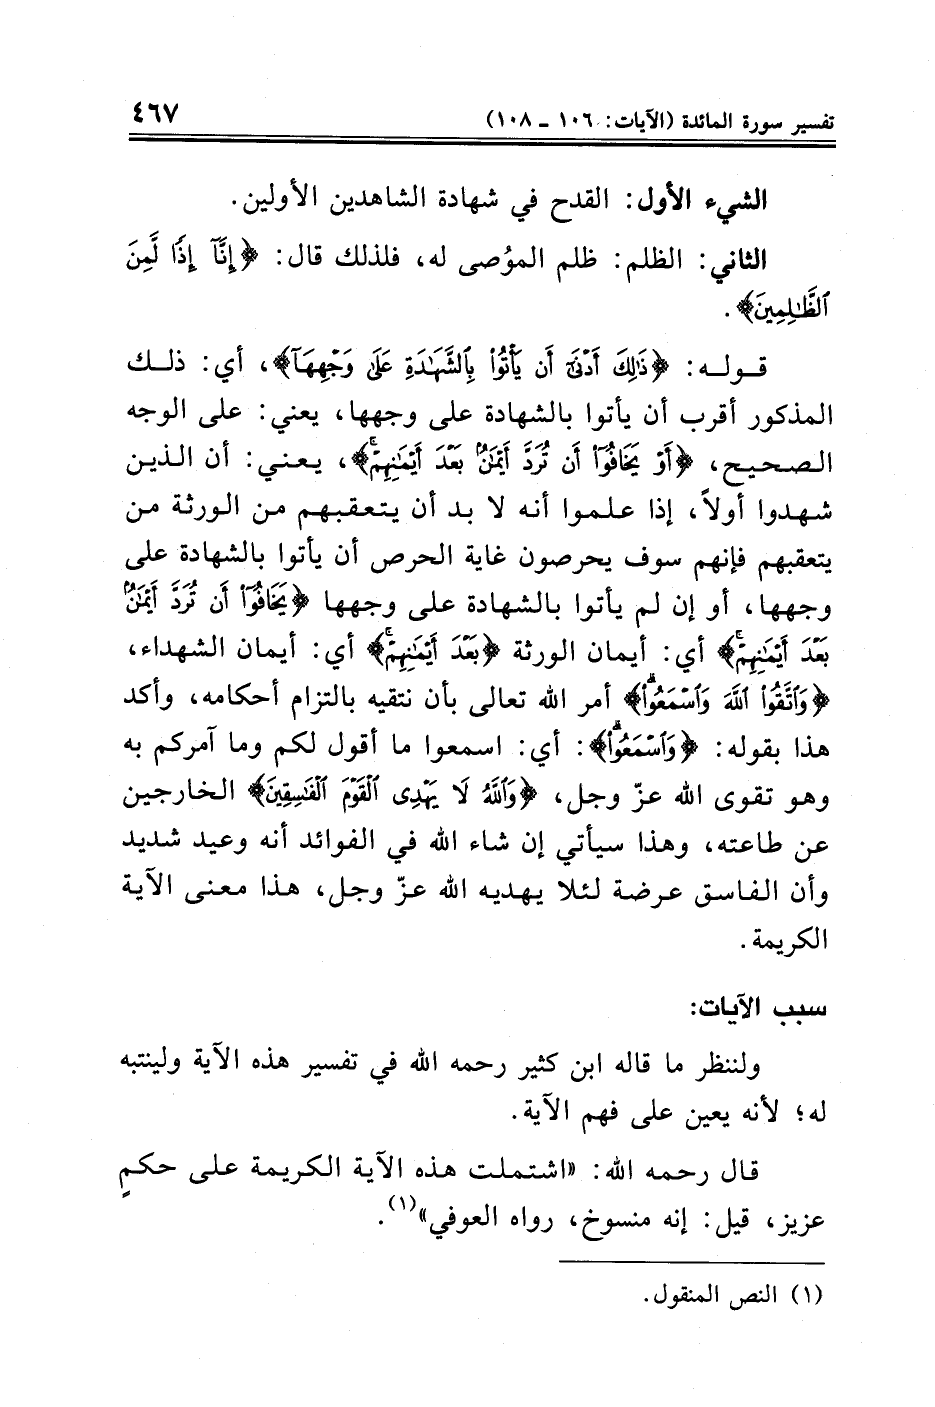 تفسير سورة المائدة (الآيات: ١٠٦ ـ ١٠٨)
٤٦٧
الشيء الأول: القدح في شهادة الشاهدين الأولين.
الثاني: الظلم: ظلم الموُصى له، فلذلك قال: ﴿إِنَّآ إِذًا لَّمِنَ
ٱلظَّـٰلِمِينَ﴾.
قـولـه: ﴿ذَٰلِكَ أَدْنَىٰٓ أَن يَأْتُوا۟ بِٱلشَّهَـٰدَةِ عَلَىٰ وَجْهِهَآ﴾، أي: ذلـك
المذكور أقرب أن يأتوا بالشهادة على وجهها، يعني: على الوجه
الصحيح، ﴿أَوْ يَخَافُوٓا۟ أَن تُرَدَّ أَيْمَـٰنٌۢ بَعْدَ أَيْمَـٰنِهِمْ ۗ﴾، يـعـني: أن الذيـن
شهـدوا أولاً، إذا عـلـمـوا أنـه لا بـد أن يـتـعـقـبـهـم مـن الـورثة مـن
يتعقبهم فإنهم سوف يحرصون غاية الحرص أن يأتوا بالشهادة على
وجهها، أو إن لم يأتوا بالشهادة على وجهها ﴿يَخَافُوٓا۟ أَن تُرَدَّ أَيْمَـٰنٌۢ
بَعْدَ أَيْمَـٰنِهِمْ ۗ﴾ أي: أيمان الورثة ﴿بَعْدَ أَيْمَـٰنِهِمْ ۗ﴾ أي: أيمان الشهداء،
﴿وَٱتَّقُوا۟ ٱللَّهَ وَٱسْمَعُوا۟ ۗ﴾ أمر الله تعالى بأن نتقيه بالتزام أحكامه، وأكد
هذا بقوله: ﴿وَٱسْمَعُوا۟ ۗ﴾: أي: اسمعوا ما أقول لكم وما آمركم به
وهو تقوى الله عزّ وجل، ﴿وَٱللَّهُ لَا يَهْدِى ٱلْقَوْمَ ٱلْفَـٰسِقِينَ﴾ الخارجين
عن طاعته، وهذا سيأتي إن شاء الله في الفوائد أنه وعيد شديد
وأن الفاسق عرضة لئلا يهديه الله عزّ وجل، هذا معنى الآية
الكريمة.
سبب الآيات:
ولننظر ما قاله ابن كثير رحمه الله في تفسير هذه الآية ولينتبه
له؛ لأنه يعين على فهم الآية.
قال رحمه الله: «اشتملت هذه الآية الكريمة على حكمٍ
عزيز، قيل: إنه منسوخ، رواه العوفي»(١).
(١) النص المنقول.